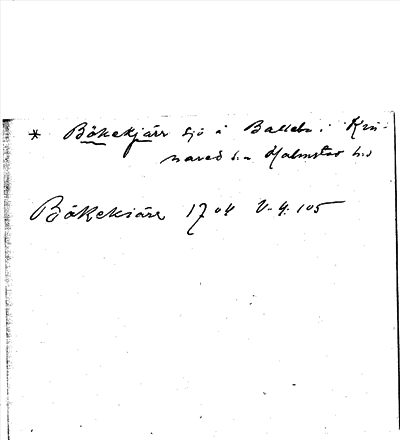 * Bökekjärr sjö å Balleb. i Kvi-
nared s:n Halmstad h:d
Bökekiärr 1704 V. 4. 105